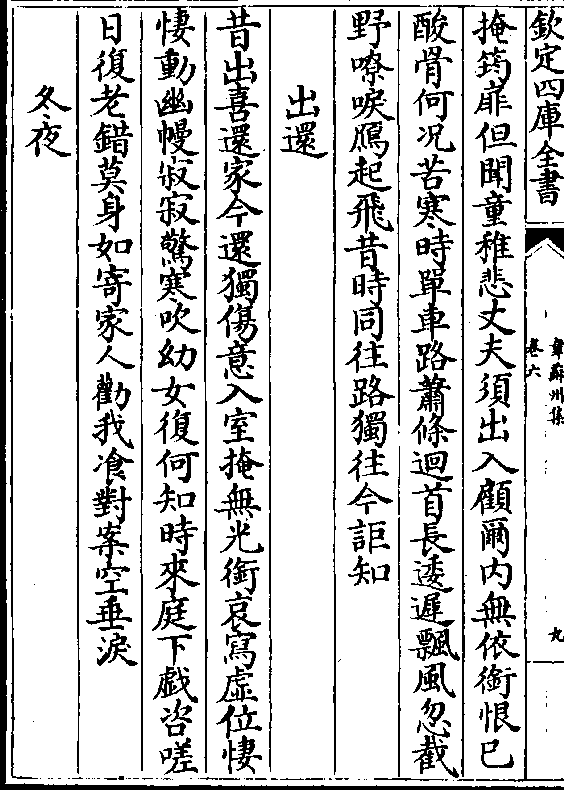 欽定四庫全書
韋蘇州集
卷六
九
掩筠扉但聞童稚悲丈夫須出入顧爾内無依銜恨已
酸骨何况苦寒時單車路蕭條迴首長逶遲飄風忽截
野嘹唳鴈起飛昔時同往路獨往今詎知
出還
昔出喜還家今還獨傷意入室掩無光銜哀寫虚位悽
悽動幽幔寂寂驚寒吹幼女復何知時來庭下戯咨嗟
日復老錯莫身如寄家人勸我飡對案空垂淚
冬夜